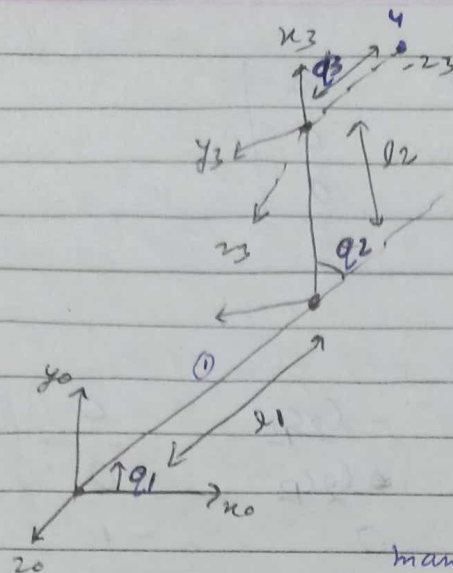 4
x3
q3
-z3
y3
l2
z3
q2
①
y0
l1
q1
x0
z0
man